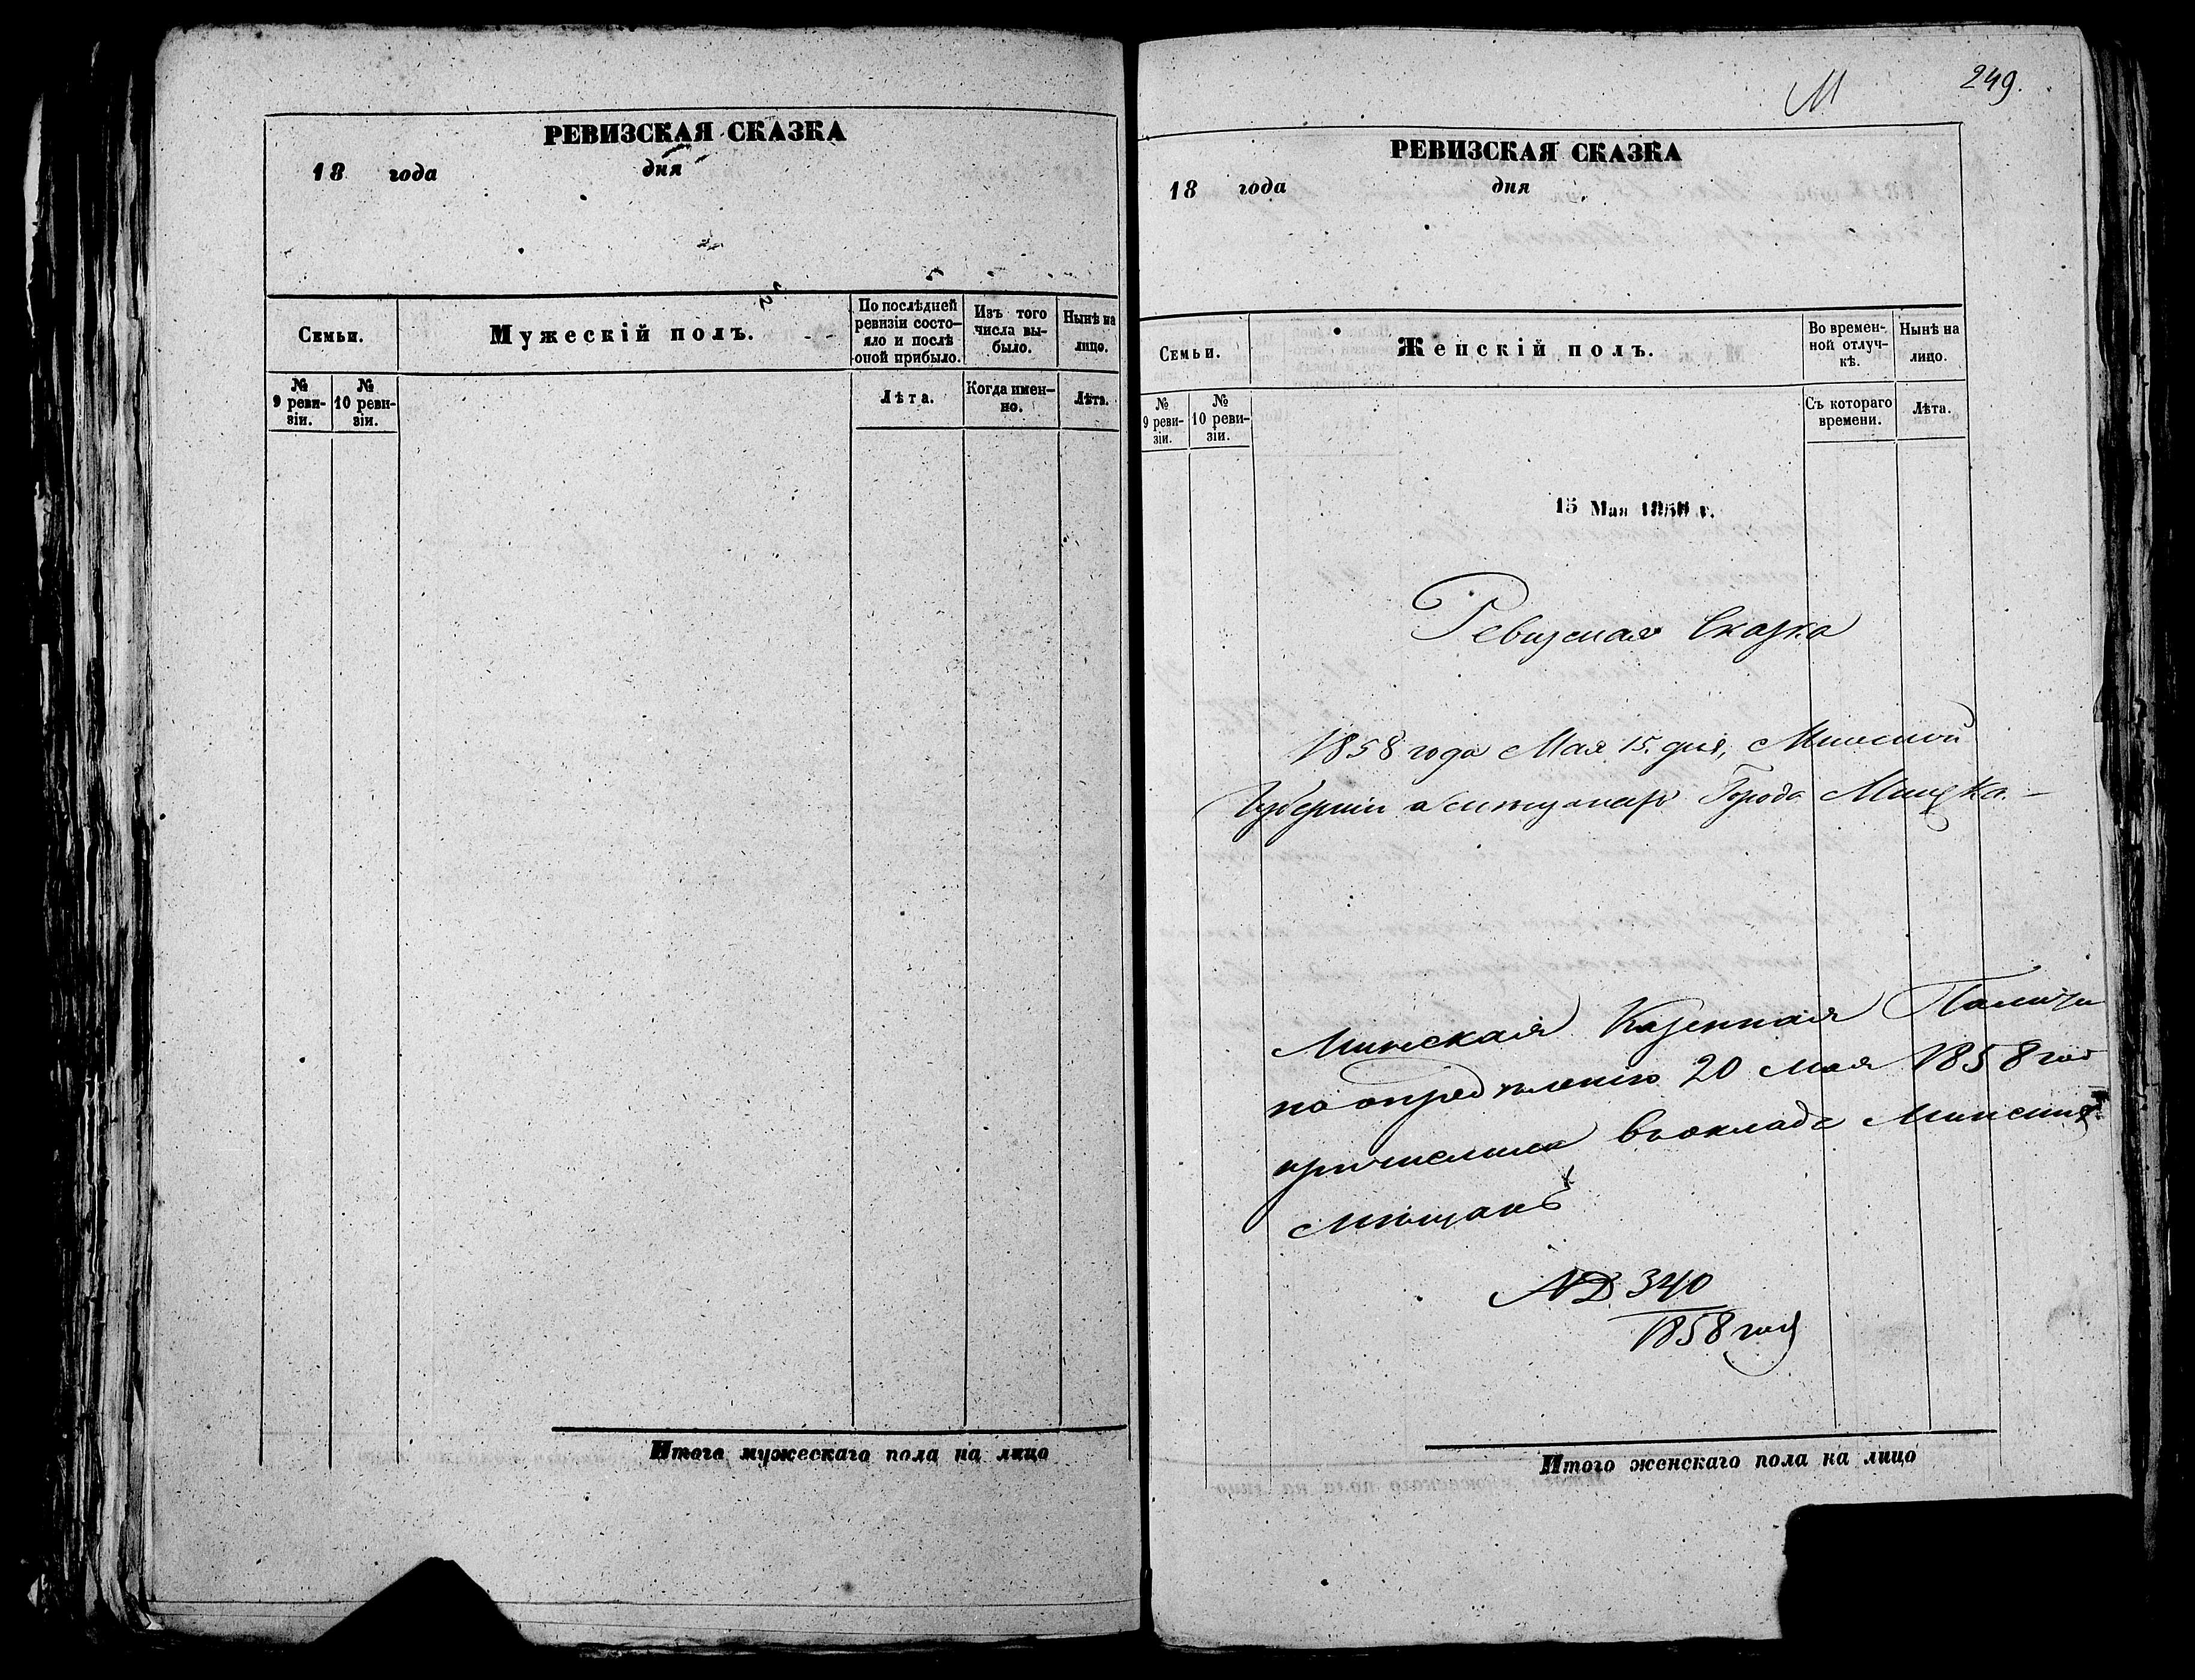 РЕВИЗСКАЯ СКАЗКА
18 года дня
Семьи.
Мужескій полъ.
По послѣдней ревизіи состо-
яло и послѣ
оной прибыло.
Изъ того
числа вы-
было.
Нынѣ на
лицо.
№
9 реви-
зіи.
№
10 реви-
зіи.
Лѣта.
Когда имен-
но.
Лѣта.
Итого мужескаго пола на лицо
М
249.
РЕВИЗСКАЯ СКАЗКА
18 года дня
Семьи.
Женскій полъ.
Во времен-
ной отлуч-
кѣ.
Нынѣ на
лицо.
№
9 реви-
зіи.
№
10 реви-
зіи.
Съ котораго
времени.
Лѣта.
15 Мая 1858 г.
Ревизская Сказка
1858 года Мая 15. дня, Минской
Губерніи Города Минска.
Минская Казенная Палата
по опредѣленію 20 мая 1858 год
причислила въ окладъ Минских
мѣщанъ
№ 340
1858 год
Итого женскаго пола на лицо